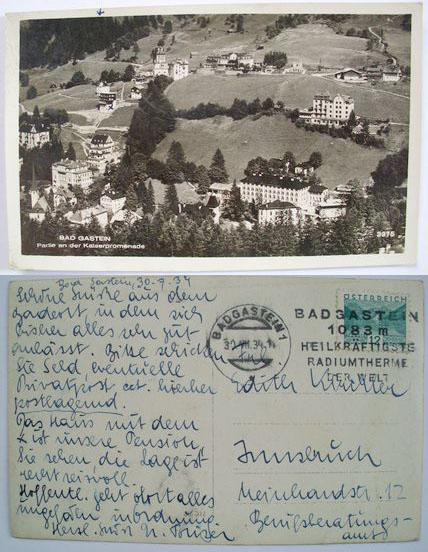 BAD GASTEIN
Partie an der Kaiserpromenade
3975
Bad Gastein, 30.9.34
Schöne Grüsse aus dem
in dem sich
bisher alles sehr gut
anlässt. Bitte schicken
Sie Geld, eventuelle
Privatpost cet. hierher
postlagernd.
Das Haus mit dem
x ist unsere Pension,
Sie sehen, die Lage ist
recht reizvoll.
Hoffentl. geht dort alles
in Ordnung.
Herzl.
BADGASTEIN 1
ÖSTERREICH
12
BADGASTEIN
1083 m
HEILKRÄFTIGSTE
RADIUMTHERME
DER WELT
Frl.
Edith
Innsbruck
Meinhardstr. 12
Berufsberatungs-
amt